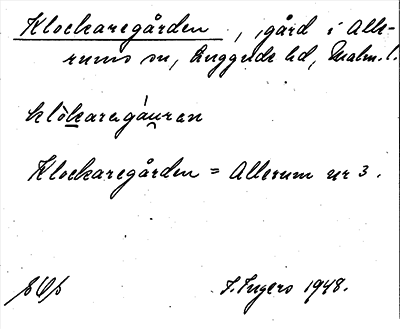 Klockaregården, gård i Alle-
rums sn, Luggude hd, Malm. l.
klòkaragáuran
Klockaregården = Allerum nr 3.
I. Ingers 1948.